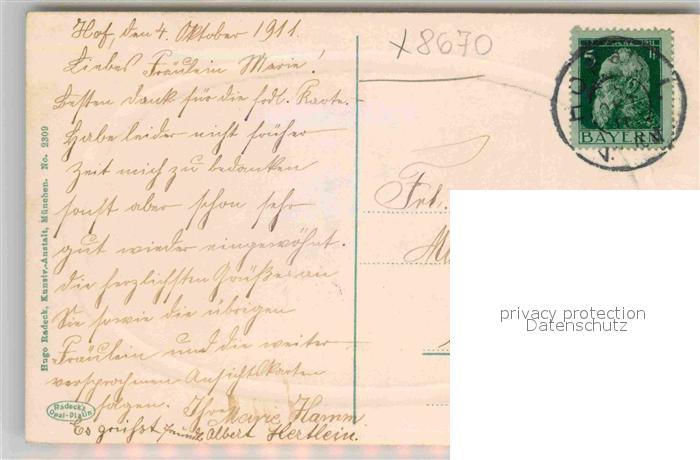 Hof, den 4. Oktober 1911.
Liebes Fräulein Marie!
Besten Dank für die frdl. Karte.
Habe leider nicht früher
Zeit mich zu bedanken
sonst aber schon sehr
gut wieder eingewöhnt.
Die herzlichsten Grüße an
Sie sowie die übrigen
Fräulein und die weiter
versprochnen Ansichtskarten
folgen. Ihre Marie Hamm
Es grüsst Albert Hertlein.
x 8670
5
BAYERN
HO
Frl.
Hugo Radeck, Kunstv.-Anstalt, München. No. 2309
Radecks
Opal-Platin
privacy protection
Datenschutz